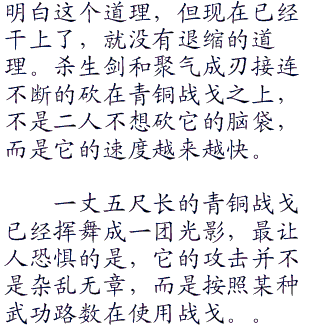 明白这个道理，但现在已经
干上了，就没有退缩的道
理。杀生剑和聚气成刃接连
不断的砍在青铜战戈之上，
不是二人不想砍它的脑袋，
而是它的速度越来越快。
一丈五尺长的青铜战戈
已经挥舞成一团光影，最让
人恐惧的是，它的攻击并不
是杂乱无章，而是按照某种
武功路数在使用战戈。。